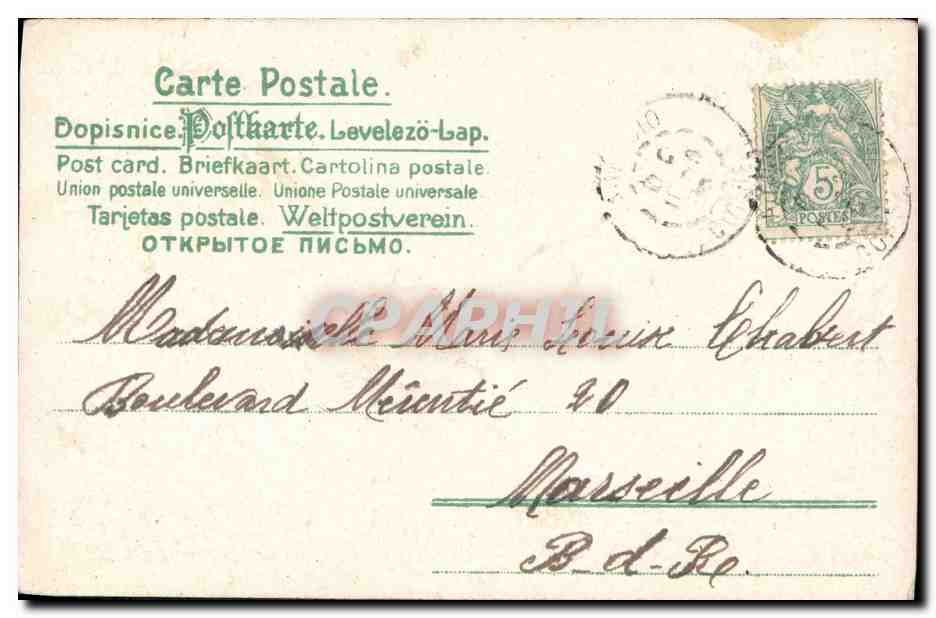 Carte Postale.
Dopisnice. Postkarte. Levelező-Lap.
Post card. Briefkaart. Cartolina postale.
Union postale universelle. Unione Postale universale.
Tarjetas postale. Weltpostverein.
ОТКРЫТОЕ ПИСЬМО.
5c
POSTES
CPAPHIL
Mademoiselle Marie Louise Chabert
Boulevard Merentié 20
Marseille
B-d-R.